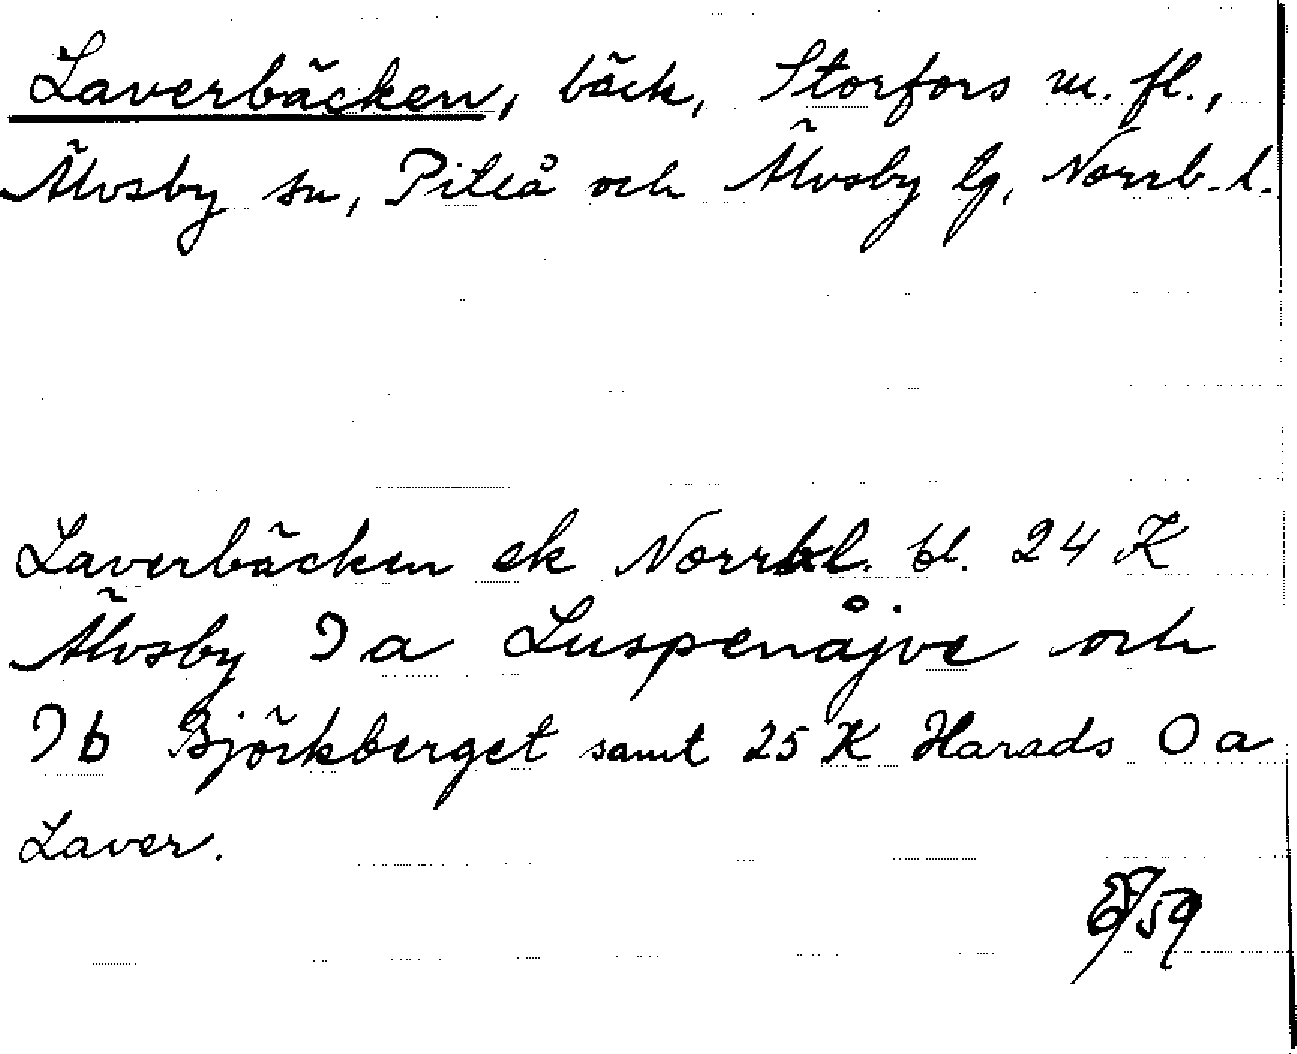 Laverbäcken, bäck, Storfors m. fl.,
Älvsby sn, Piteå och Älvsby lg, Norrb. l.
Laverbäcken ek Norrbl. bl. 24 K
Älvsby I a Luspenåjve och
I b Björkberget samt 25 K Harads O a
Laver.
/59